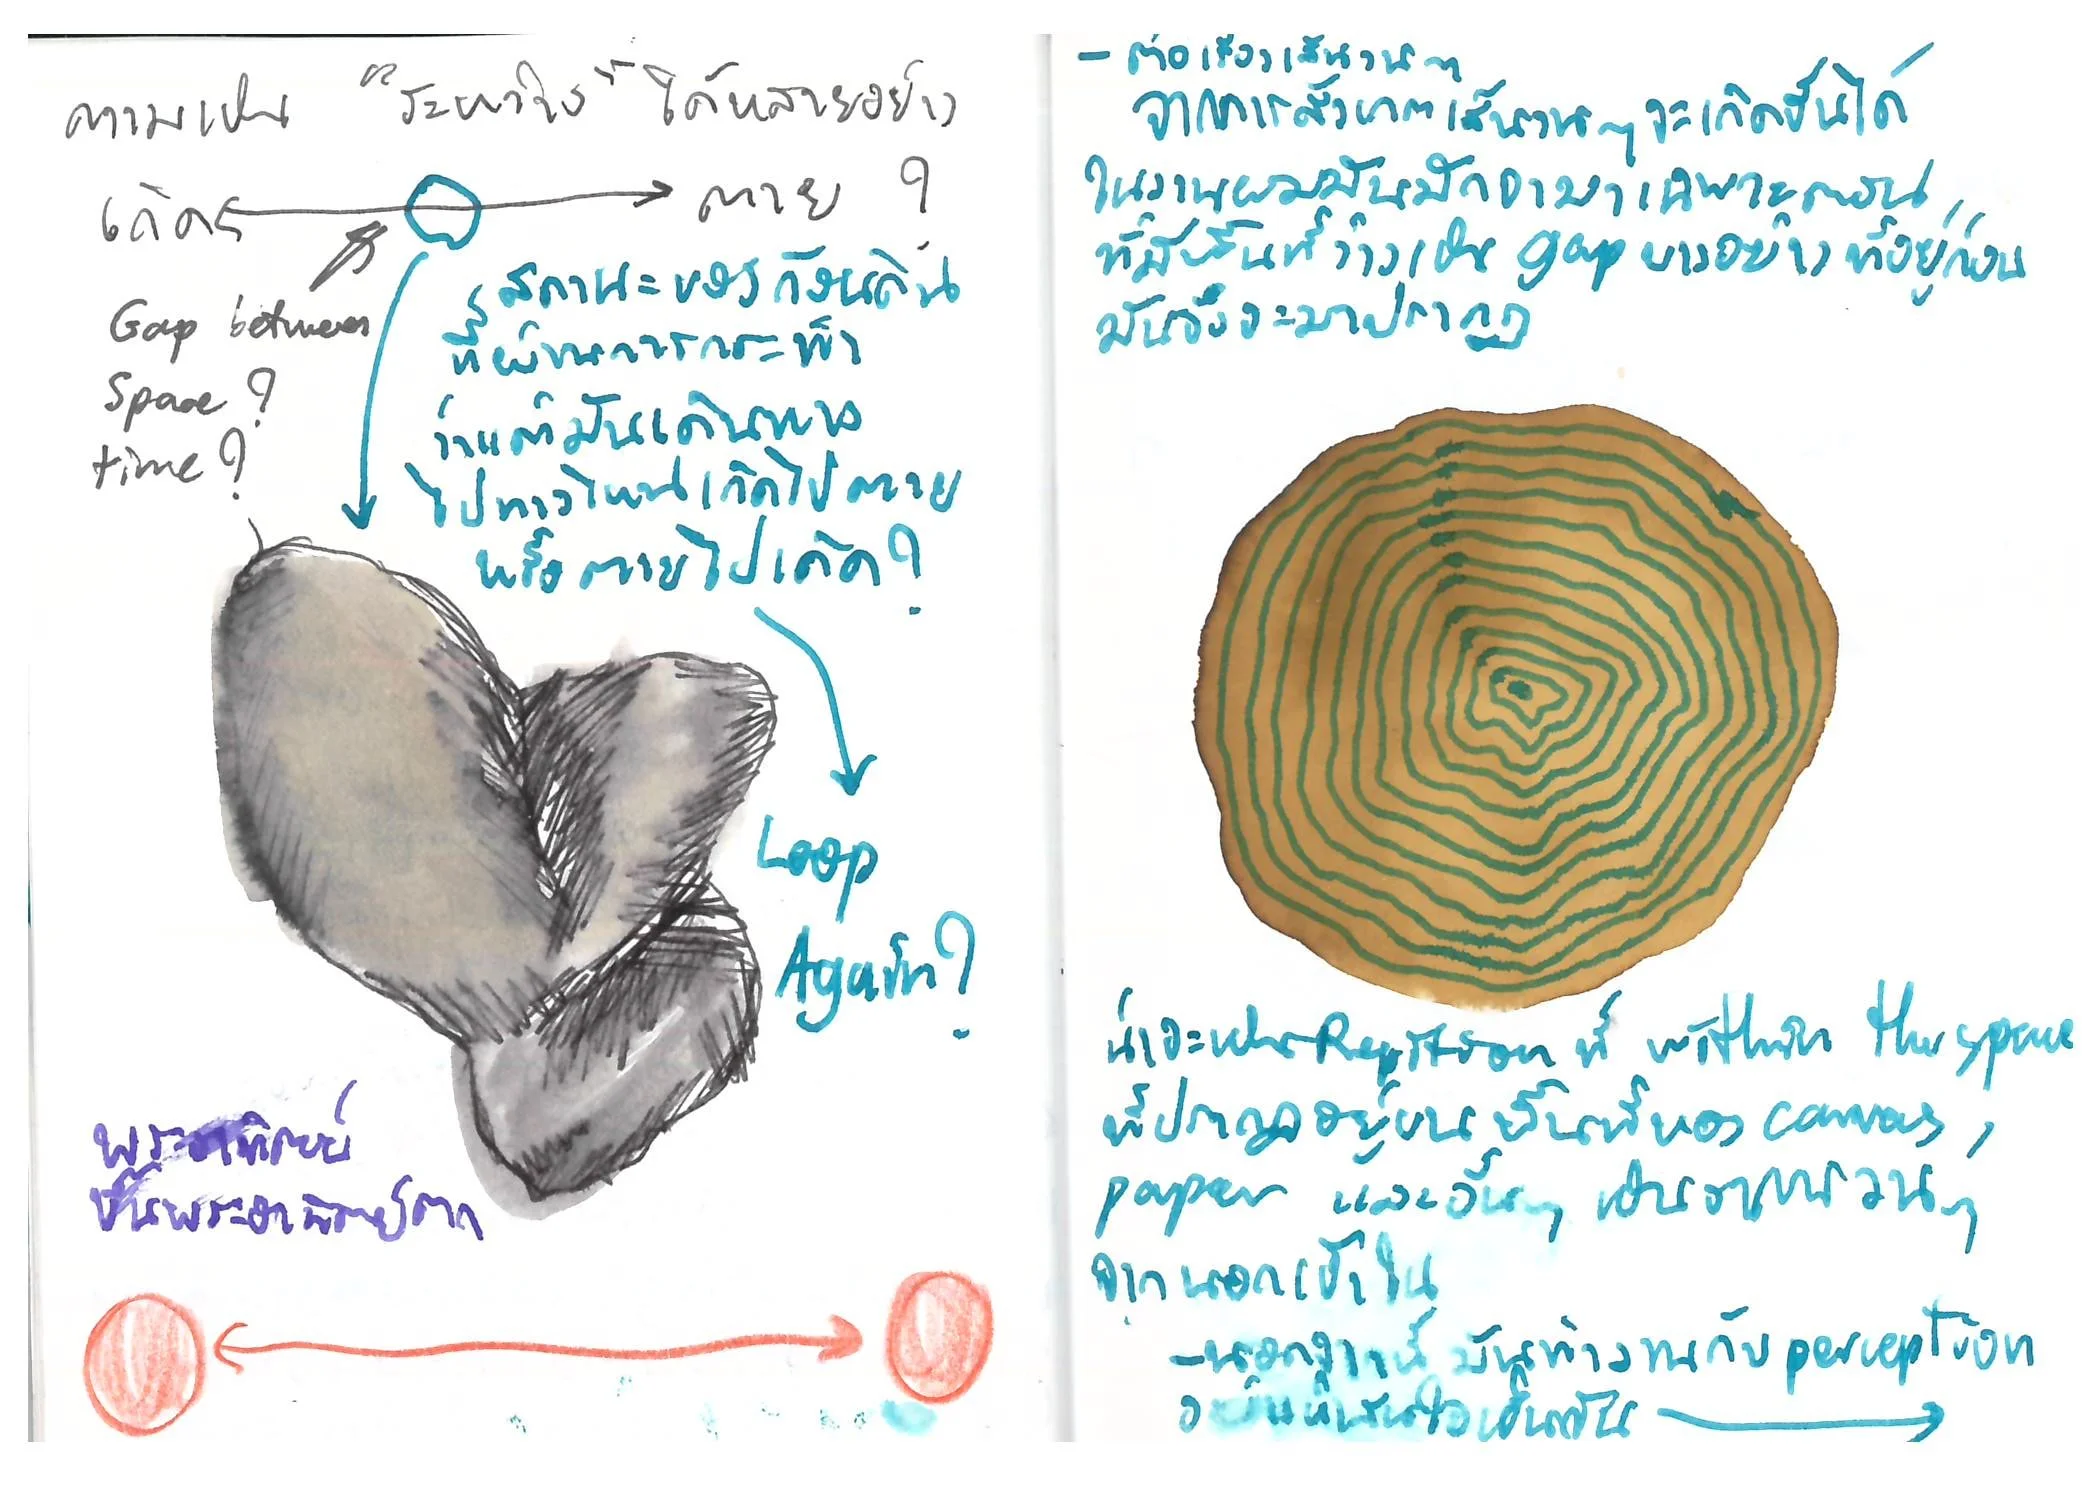 ความเป็น "ระหว่าง" ได้หลายอย่าง
เกิด ตาย ?
Gap between
Space ?
time ?
สถานะของก้อนหิน
ที่ผ่านการกระทำ
ว่าแต่มันเดินทาง
ไปทางไหนเกิดไปตาย
หรือตายไปเกิด ?
Loop
Again ?
พระอาทิตย์
ขึ้นพระอาทิตย์ตก
- ต่อเรื่องเส้นวนๆ
จากการสังเกตเส้นวนๆ จะเกิดขึ้นได้
ในงานผมมันมักจะมาเฉพาะตอน
ที่มีพื้นที่ว่างเป็น gap บางอย่าง ที่อยู่ก่อน
มันจึงจะมาปรากฏ
น่าจะเป็น Repitition ที่ within the space
ที่ปรากฏอยู่บนพื้นที่ของ canvas,
paper และอื่นๆ เป็นอาการวนๆ
จากนอกเข้าใน
- นอกจากนี้ มันทำงานกับ perception